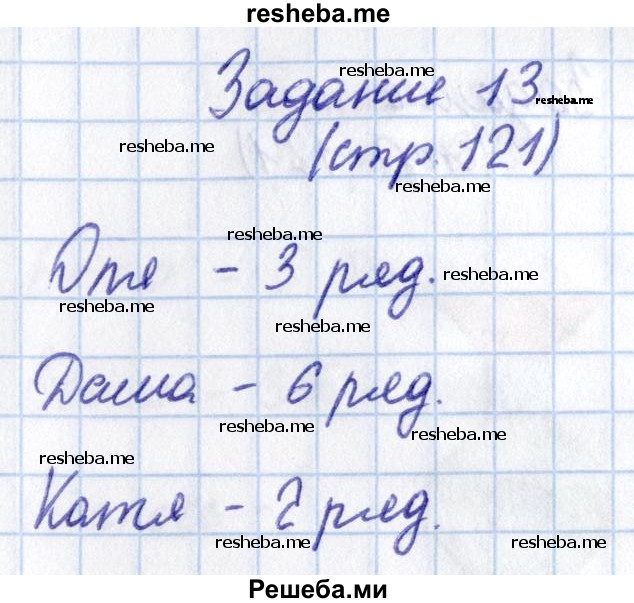 resheba.me
Задание 13
resheba.me
resheba.me
resheba.me
(стр. 121)
resheba.me
resheba.me
Оля - 3 ряд.
resheba.me
resheba.me
resheba.me
Даша - 6 ряд.
resheba.me
resheba.me
resheba.me
Катя - 2 ряд.
resheba.me
resheba.me
Решеба.ми